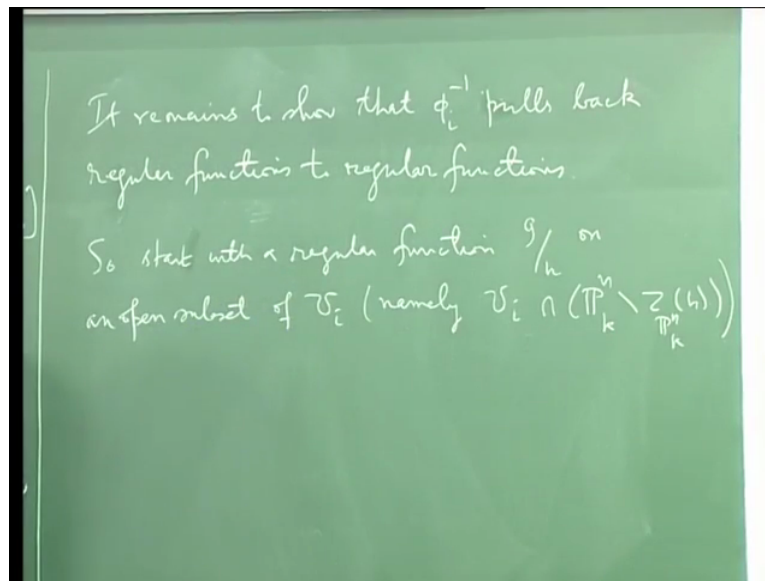 It remains to show that ϕᵢ⁻¹ pulls back
regular functions to regular functions.
So start with a regular function g/h on
an open subset of Uᵢ (namely Uᵢ ∩ (ℙⁿₖ \ Z_{ℙⁿₖ}(h)))